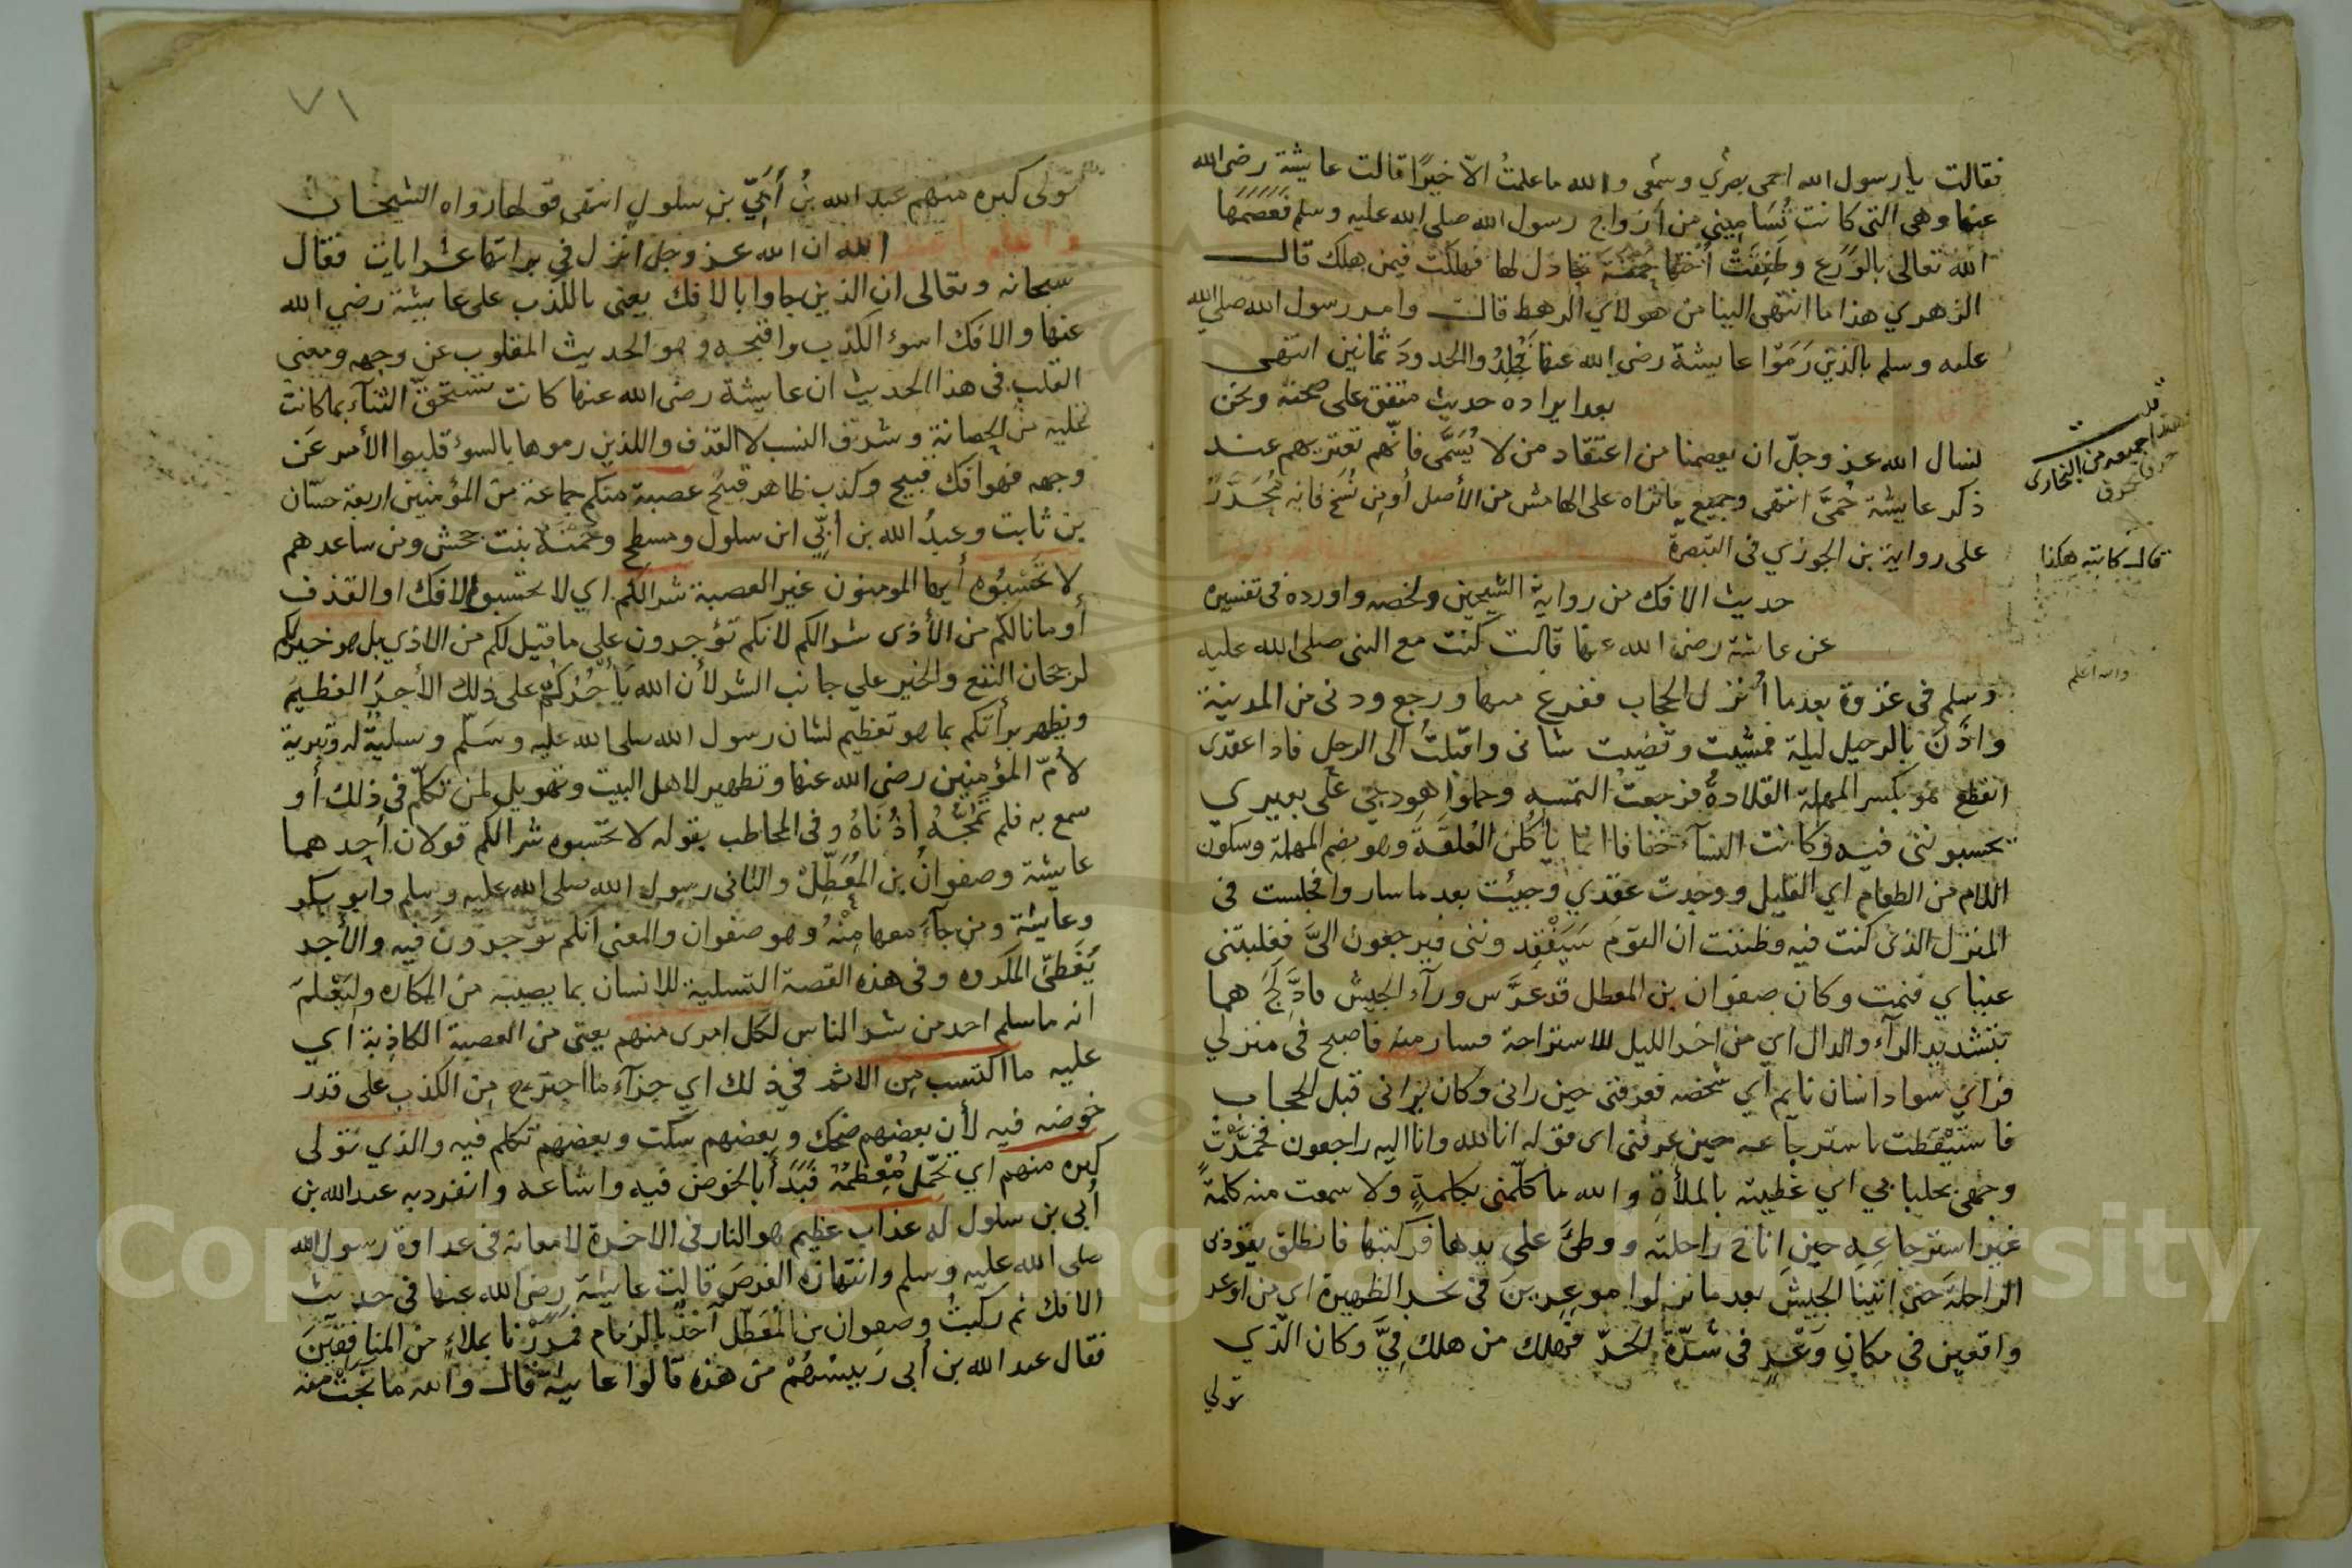 فقالت يا رسول الله احمى بصري وسمعى والله ما علمتُ الّا خيرًا قالت عايشة رضى الله
عنها وهى التى كانت تُسَامِيني من أزواج رسول الله صلى الله عليه وسلم فَعَصَمَهَا
الله تعالى بالوَرَع وطَفِقَتْ أختها حَمْنَة تجادل لها فهلكت فيمن هلك قال
الزهري هذا ما انتهى الينا من هولاي الرهط قالت وامر رسول الله صلى الله
عليه وسلم بالذين رَمَوْا عايشة رضى الله عنها فجُلِدُوا الحدودَ ثمانين انتهى
بعد ايراده حديث متفق على صحته ونحن
نسال الله عز وجلّ ان يعصمنا من اعتقاد من لا يُسَمَّى فانّهم تعتريهم عند
ذكر عايشة حُمَّى انتهى وجميع ما تراه على الهامش من الأصل أو من نُسَخ فانه مُحَرَّرٌ
على رواية بن الجوزي فى التبصرة
حديث الافك من رواية الشيخين ولخصه واورده فى تفسيره
عن عايشة رضى الله عنها قالت كنت مع النبى صلى الله عليه
وسلم فى غزوة بعد ما أُنزل الحجاب ففرغ منها ورجع ودنى من المدينة
واذَّنَ بالرحيل ليلة فمشيت وقضيت شانى واقبلتُ الى الرحل فاذا عقدى
انقطع هو بكسر المهملة القلادةُ فرجعتُ التمسه وحملوا هودجى على بعيري
يحسبوننى فيه وكانت النسآء خفافا انما يأكلن العُلقةَ وهو بضم المهملة وسكون
اللام من الطعام اي القليل ووجدت عقدي وجيئت بعد ما ساروا فجلست فى
المنزل الذى كنت فيه وظننت ان القوم سَيَفْقِدوننى فيرجعون الىَّ فغلبتنى
عيناي فنمت وكان صفوان بن المعطل قد عَرَّس ورآء الجيش فادَّلَجَ هما
بتشديد الرآء والدال اي من اخر الليل للاستراحة فسار منه فاصبح فى منزلي
فراي سواد انسان نايم اي شخصه فعرفنى حين رانى وكان يرانى قبل الحجاب
فاستَيْقَظت باسترجاعه حين عرفنى اى قوله انا لله وانا اليه راجعون فخمَّرْت
وجهى بجلبابي اي غطيته بالملأة والله ما كلّمنى بكلمةٍ ولا سمعت منه كلمةً
غير استرجاعِهِ حين اناخ راحلته ووطئَ على يدها فركبتها فانطلق يقودُ بى
الراحلةَ حتى اتينا الجيشَ بعد ما نزلوا موغِرينَ فى نحر الظهيرة اي من اوغر
واقفين في مكانٍ وَغْرٍ فى شدّة الحرّ فهلك من هلك فيَّ وكان الذي
تولي
قلت
هذا جميعه من البخارى
قال كاتبه هكذا
والله اعلم
٧١
تولى كبره منهم عبد الله بنُ أُبَيِّ بنِ سلولٍ انتهى قولها رواه الشيخان
واعلم
الله ان الله عز وجل انزل في براتها عشر ايات فقال
سبحانه وتعالى ان الذين جاوا بالافك يعنى بالكذب على عايشة رضي الله
عنها والافك اسوء الكذب واقبحه وهو الحديث المقلوب عن وجهه ومعنى
القلب فى هذا الحديث ان عايشة رضى الله عنها كانت تستحقّ الثنآء بما كانت
عليه من الحصانة وشرف النسب لا القذف واللذين رموها بالسوء قلبوا الأمر عَن
وجهه فهو افك قبيح وكذب ظاهر قبيح عصبة منكم جماعة من المؤمنين اربعة حسّان
بن ثابت وعبدُ الله بن أبيّ ابن سلول ومسطح وحمنة بنت جحش ومن ساعدهم
لا تحسَبُوه أيها المومنون غير العصبة شرا لكم اي لا تحسبوا الافك او القذف
أو ما نالكم من الأذى شرا لكم لانكم تؤجرون على ما قيل لكم من الاذي بل هو خير لكم
لرجحان النفع والخير علي جانب الشر لأن الله يَأجُرُكُم على ذلك الأجرَ العظيمَ
ويظهر برأتكم بما هو تعظيم لشان رسول الله صلى الله عليه وسَلّم وتسليةٌ له وتبرية
لأمّ المؤمنين رضى الله عنها وتطهير لاهل البيت وتهويل لمن تكلّم في ذلك أو
سمع به فلم تَمُجَّهُ أذُنَاهُ وفى المخاطب بقوله لا تحسبوه شرا لكم قولان أحدهما
عايشة وصفوانُ بن المُعَطِّلْ والثانى رسول الله صلى الله عليه وسلم وابو بكر
وعايشة ومن جآء معها مِنْهُ وهو صفوان والمعنى انكم توجرون فيه والأجر
يُغَطىّ المكروه وفى هذه القصة التسلية للانسان بما يصيبه من المكاره وليَعْلَمَ
انه ما سلم احد من شر الناس لكل امرى منهم يعنى من العصبة الكاذبة اي
عليه ما اكتسب من الاثم في ذلك اي جزآء ما اجترح من الكذب على قدر
خوضه فيه لأن بعضهم ضحك وبعضهم سكت وبعضهم تكلم فيه والذي تولى
كبره منهم اي تحمّل مُعْظمَهُ فَبَدَأ بالخوض فيه واشاعه وانفرد به عبد الله بن
أبى بن سلول له عذاب عظيم هو النار فى الاخرة لامعانه فى عداوة رسول الله
صلى الله عليه وسلم وانتهازه الفرصَ قالت عايشة رضى الله عنها فى حديث
الافك ثم ركبتُ وصفوان بن المُعَطّل آخذٌ بالزمام فمررْنا بملاءٍ من المنافقينَ
فقال عبد الله بن أبى رَييسُهُمْ من هذه قالوا عايشة قال والله ما نجَتْ منه